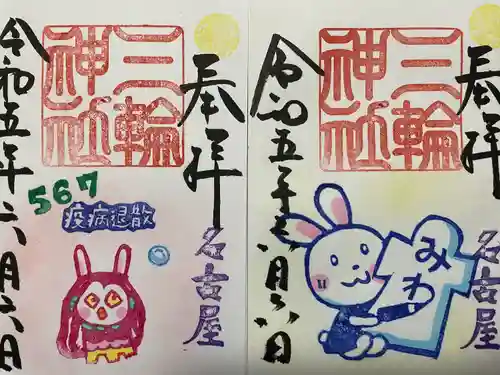 奉拝
三輪
神社
名古屋
567
疫病退散
令和五年六月六日
奉拝
三輪
神社
名古屋
みわ
令和五年六月六日